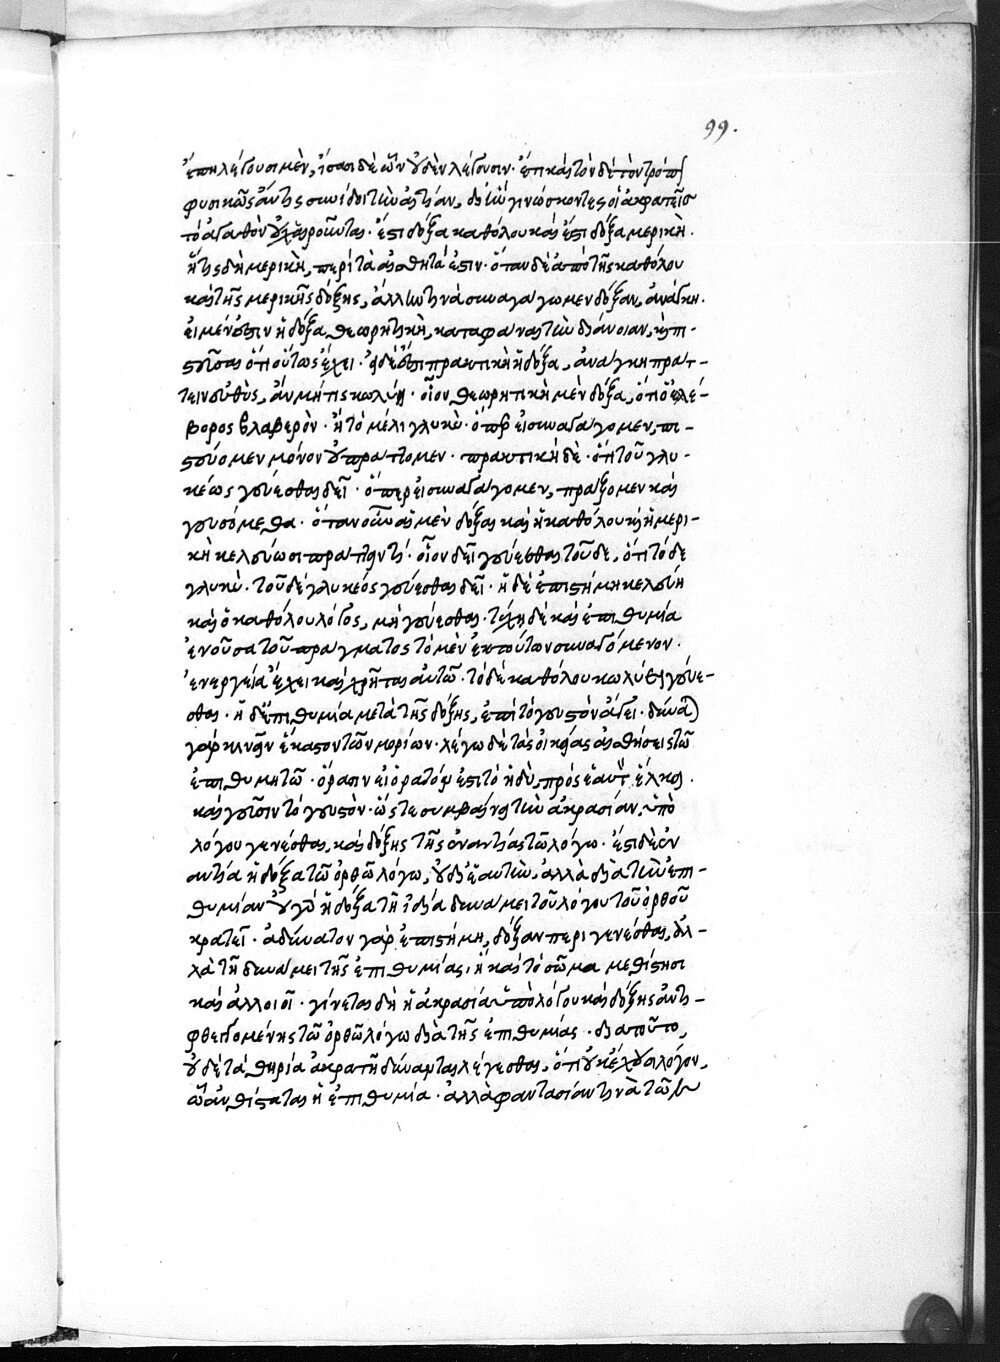 99.
ἔπη λέγουσι μὲν, ἴσασι δὲ ὧν οὐδὲν λέγουσιν. ἔτι καὶ τὸν δὲ τὸν τρόπον
φυσικῶς ἄν τις συνίδοι τὴν αἰτίαν, δι' ἣν γινώσκοντες οἱ ἀκρατεῖς
τὸ ἀγαθὸν οὐχ αἱροῦνται. ἔστι δόξα καθόλου καὶ ἔστι δόξα μερική.
ἥτις δὴ μερικὴ, περὶ τὰ αἰσθητά ἐστιν. ὅταν δὲ ἀπὸ τῆς καθόλου
καὶ τῆς μερικῆς δόξης, ἄλλην τινὰ συναγάγωμεν δόξαν, ἀνάγκη.
εἰ μέν ἐστιν ἡ δόξα θεωρητικὴ, καταφάναι τὴν διάνοιαν, καὶ πι-
στεῦσαι ὅτι οὕτως ἔχει. εἰ δέ ἐστι πρακτικὴ ἡ δόξα, ἀνάγκη πρατ-
τειν εὐθὺς, ἂν μή τις κωλύῃ. οἷον θεωρητικὴ μὲν δόξα, ὅτι ὁ ἐλέ-
βορος βλαβερόν. ἢ τὸ μέλι γλυκύ. ὅπερ εἰ συναγάγομεν, πι-
στεύομεν μόνον οὐ πράττομεν. πρακτικὴ δὲ. ὅτι τοῦ γλυ-
κέως γεύεσθαι δεῖ. ὅπερ εἰ συναγάγομεν, πράξομεν καὶ
γευσόμεθα. ὅταν οὖν αἱ μὲν δόξαι καὶ ἡ καθόλου καὶ ἡ μερι-
κὴ κελεύωσι πράττειν τι. οἷον δεῖ γεύεσθαι τοῦδε, ὅτι τόδε
γλυκύ. τοῦ δὲ γλυκέος γεύεσθαι δεῖ. ἡ δὲ ἐπιστήμη κελεύῃ
καὶ ὁ καθόλου λόγος, μὴ γεύεσθαι. τύχῃ δὲ καὶ ἐπιθυμία
ἐνοῦσα τοῦ πράγματος τὸ μὲν ἐκ τούτων συναγόμενον.
ἐνεργεία ἔχει καὶ χρῆται αὐτῷ. τὸ δὲ καθόλου κωλύει γεύε-
σθαι. ἡ δ' ἐπιθυμία μετὰ τῆς δόξης, ἐπὶ τὸ γευστὸν ἄγει. δύναται
γὰρ κινῆσαι ἕκαστον τῶν μορίων. λέγω δὲ τὰς οἰκείας αἰσθήσεις τῷ
ἐπιθυμητῷ. ὅρασιν εἰ ὁρατόν ἐστι τὸ ἡδὺ, πρὸς ἑαυτὸ ἕλκει.
καὶ γεῦσιν τὸ γευστόν. ὥστε συμβαίνει τὴν ἀκρασίαν, ὑπὸ
λόγου γενέσθαι, καὶ δόξης τῆς ἐναντίας τῷ λόγῳ. ἔστι δὲ ἐν
αντία ἡ δόξα τῷ ὀρθῷ λόγῳ, οὐ δι' ἑαυτὴν, ἀλλὰ διὰ τὴν ἐπι-
θυμίαν οὐ γὰρ ἡ δόξα τῇ ἰδίᾳ δυνάμει τοῦ λόγου τοῦ ὀρθοῦ
κρατεῖ. ἀδύνατον γὰρ ἐπιστήμη, δόξαν περιγενέσθαι, ἀλ-
λὰ τῇ δυνάμει τῆς ἐπιθυμίας, ἣ καὶ τὸ σῶμα μεθίστησι
καὶ ἀλλοιοῖ. γίνεται δὴ ἡ ἀκρασία ὑπὸ λόγου καὶ δόξης ἀντι-
φθεγγομένης τῷ ὀρθῷ λόγῳ διὰ τῆς ἐπιθυμίας. διὰ τοῦτο,
οὐδὲ τὰ θηρία ἀκρατῆ δύναται λέγεσθαι, ὅτι οὐκ ἔχουσι λόγον,
ᾧ ἀνθίσταται ἡ ἐπιθυμία. ἀλλὰ φαντασίαν τινὰ τῶν